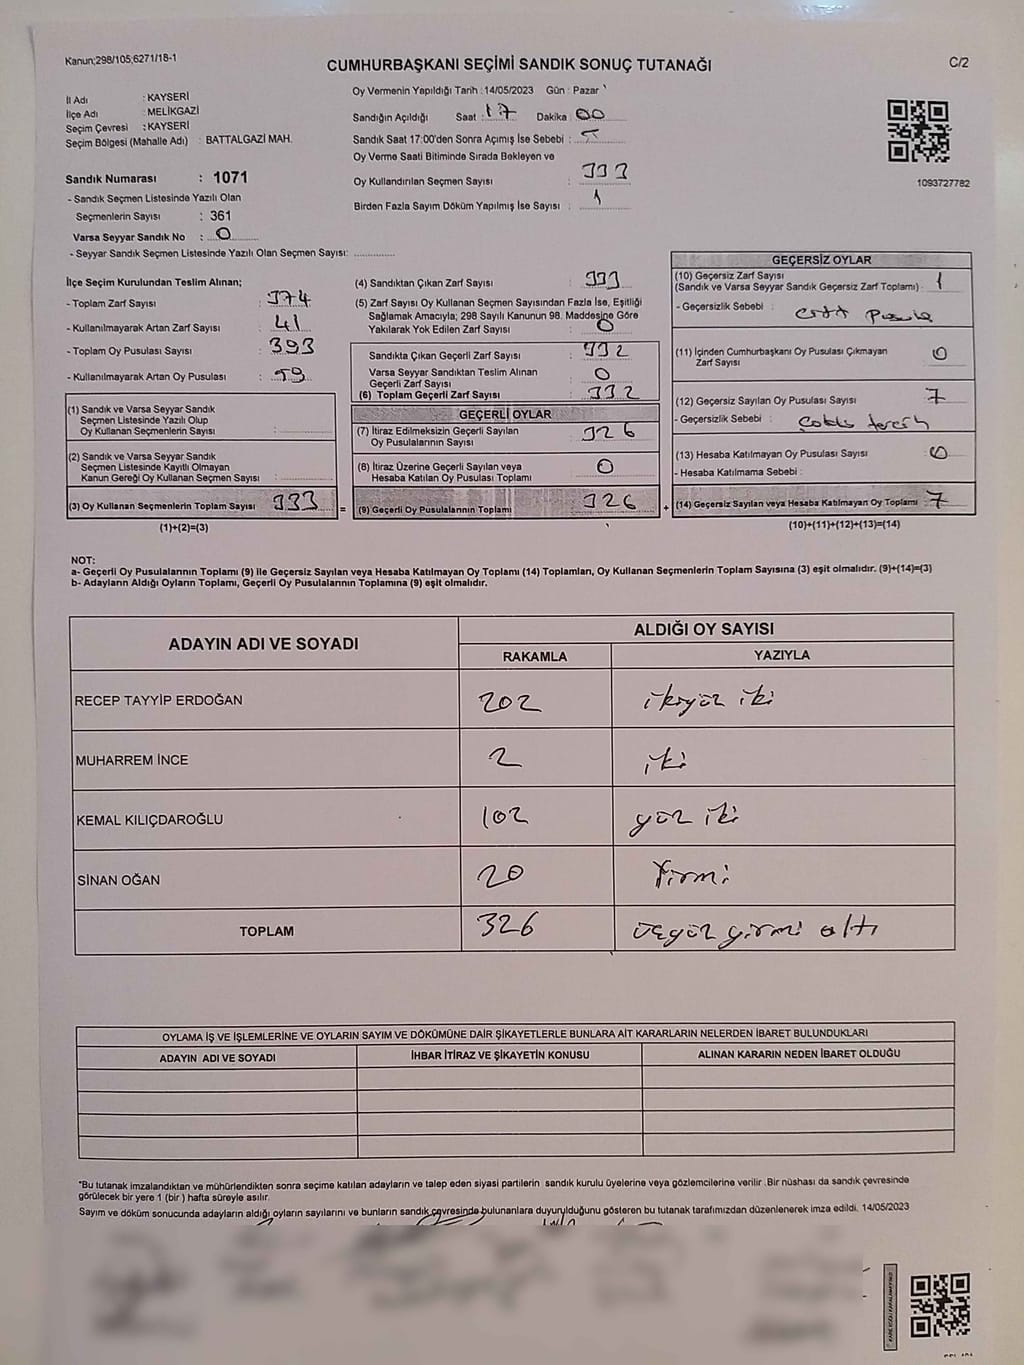 Kanun;298/105;6271/18-1
CUMHURBAŞKANI SEÇİMİ SANDIK SONUÇ TUTANAĞI
C/2
İl Adı : KAYSERİ
İlçe Adı : MELİKGAZİ
Seçim Çevresi : KAYSERİ
Seçim Bölgesi (Mahalle Adı) : BATTALGAZİ MAH.
Sandık Numarası : 1071
- Sandık Seçmen Listesinde Yazılı Olan
Seçmenlerin Sayısı : 361
Varsa Seyyar Sandık No : 0
- Seyyar Sandık Seçmen Listesinde Yazılı Olan Seçmen Sayısı:
Oy Vermenin Yapıldığı Tarih : 14/05/2023 Gün : Pazar
Sandığın Açıldığı Saat : 17 Dakika : 00
Sandık Saat 17:00'den Sonra Açımış İse Sebebi :
Oy Verme Saati Bitiminde Sırada Bekleyen ve
Oy Kullandırılan Seçmen Sayısı : 333
Birden Fazla Sayım Döküm Yapılmış İse Sayısı : 1
1093727782
İlçe Seçim Kurulundan Teslim Alınan;
- Toplam Zarf Sayısı : 374
- Kullanılmayarak Artan Zarf Sayısı : 41
- Toplam Oy Pusulası Sayısı : 393
- Kullanılmayarak Artan Oy Pusulası : 59
(1) Sandık ve Varsa Seyyar Sandık
Seçmen Listesinde Yazılı Olup
Oy Kullanan Seçmenlerin Sayısı :
(2) Sandık ve Varsa Seyyar Sandık
Seçmen Listesinde Kayıtlı Olmayan
Kanun Gereği Oy Kullanan Seçmen Sayısı :
(3) Oy Kullanan Seçmenlerin Toplam Sayısı : 333
(1)+(2)=(3)
=
(4) Sandıktan Çıkan Zarf Sayısı : 333
(5) Zarf Sayısı Oy Kullanan Seçmen Sayısından Fazla İse, Eşitliği
Sağlamak Amacıyla; 298 Sayılı Kanunun 98. Maddesine Göre
Yakılarak Yok Edilen Zarf Sayısı : 0
Sandıkta Çıkan Geçerli Zarf Sayısı : 332
Varsa Seyyar Sandıktan Teslim Alınan
Geçerli Zarf Sayısı : 0
(6) Toplam Geçerli Zarf Sayısı : 332
GEÇERLİ OYLAR
(7) İtiraz Edilmeksizin Geçerli Sayılan
Oy Pusulalarının Sayısı : 326
(8) İtiraz Üzerine Geçerli Sayılan veya
Hesaba Katılan Oy Pusulası Toplamı : 0
(9) Geçerli Oy Pusulalarının Toplamı : 326
+
GEÇERSİZ OYLAR
(10) Geçersiz Zarf Sayısı
(Sandık ve Varsa Seyyar Sandık Geçersiz Zarf Toplamı) : 1
- Geçersizlik Sebebi : Pusula
(11) İçinden Cumhurbaşkanı Oy Pusulası Çıkmayan
Zarf Sayısı : 0
(12) Geçersiz Sayılan Oy Pusulası Sayısı : 7
- Geçersizlik Sebebi : tercih
(13) Hesaba Katılmayan Oy Pusulası Sayısı : 0
- Hesaba Katılmama Sebebi :
(14) Geçersiz Sayılan veya Hesaba Katılmayan Oy Toplamı : 7
(10)+(11)+(12)+(13)=(14)
NOT:
a- Geçerli Oy Pusulalarının Toplamı (9) ile Geçersiz Sayılan veya Hesaba Katılmayan Oy Toplamı (14) Toplamları, Oy Kullanan Seçmenlerin Toplam Sayısına (3) eşit olmalıdır. (9)+(14)=(3)
b- Adayların Aldığı Oyların Toplamı, Geçerli Oy Pusulalarının Toplamına (9) eşit olmalıdır.
ADAYIN ADI VE SOYADI
ALDIĞI OY SAYISI
RAKAMLA YAZIYLA
RECEP TAYYİP ERDOĞAN 202 ikiyüz iki
MUHARREM İNCE 2 iki
KEMAL KILIÇDAROĞLU 102 yüz iki
SİNAN OĞAN 20 Yirmi
TOPLAM 326 üçyüz yirmi altı
OYLAMA İŞ VE İŞLEMLERİNE VE OYLARIN SAYIM VE DÖKÜMÜNE DAİR ŞİKAYETLERLE BUNLARA AİT KARARLARIN NELERDEN İBARET BULUNDUKLARI
ADAYIN ADI VE SOYADI İHBAR İTİRAZ VE ŞİKAYETİN KONUSU ALINAN KARARIN NEDEN İBARET OLDUĞU
*Bu tutanak imzalandıktan ve mühürlendikten sonra seçime katılan adayların ve talep eden siyasi partilerin sandık kurulu üyelerine veya gözlemcilerine verilir .Bir nüshası da sandık çevresinde
görülecek bir yere 1 (bir ) hafta süreyle asılır.
Sayım ve döküm sonucunda adayların aldığı oyların sayılarını ve bunların sandık çevresinde bulunanlara duyurulduğunu gösteren bu tutanak tarafımızdan düzenlenerek imza edildi. 14/05/2023